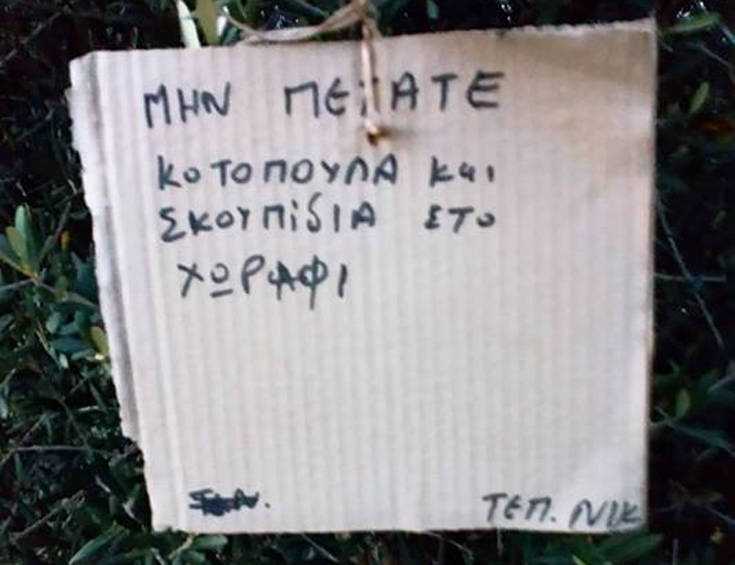 ΜΗΝ ΠΕΤΑΤΕ
ΚΟΤΟΠΟΥΛΑ Και
ΣΚΟΥΠίδΙΑ ΣΤΟ
ΧΩΡΑΦΙ
ΤΕΠ. ΝΙΚ